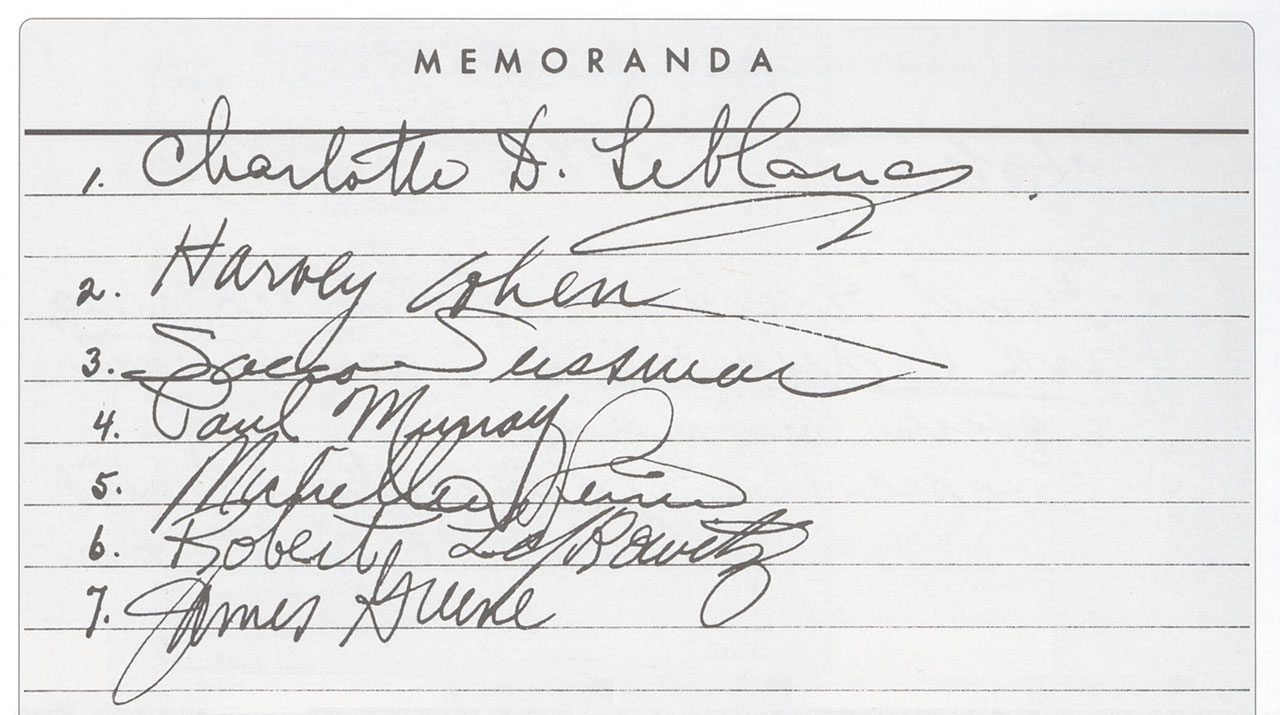 MEMORANDA
1. Charlotte D. Leblanc
2. Harvey Cohen
3. Sussman
4. Paul Murray
5. Michelle
6. Robert
7. James Greene